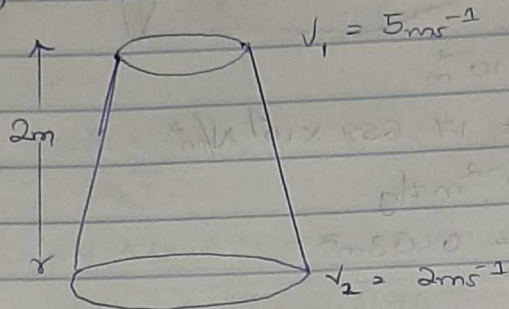 V₁ = 5ms⁻¹
2m
V₂ = 2ms⁻¹